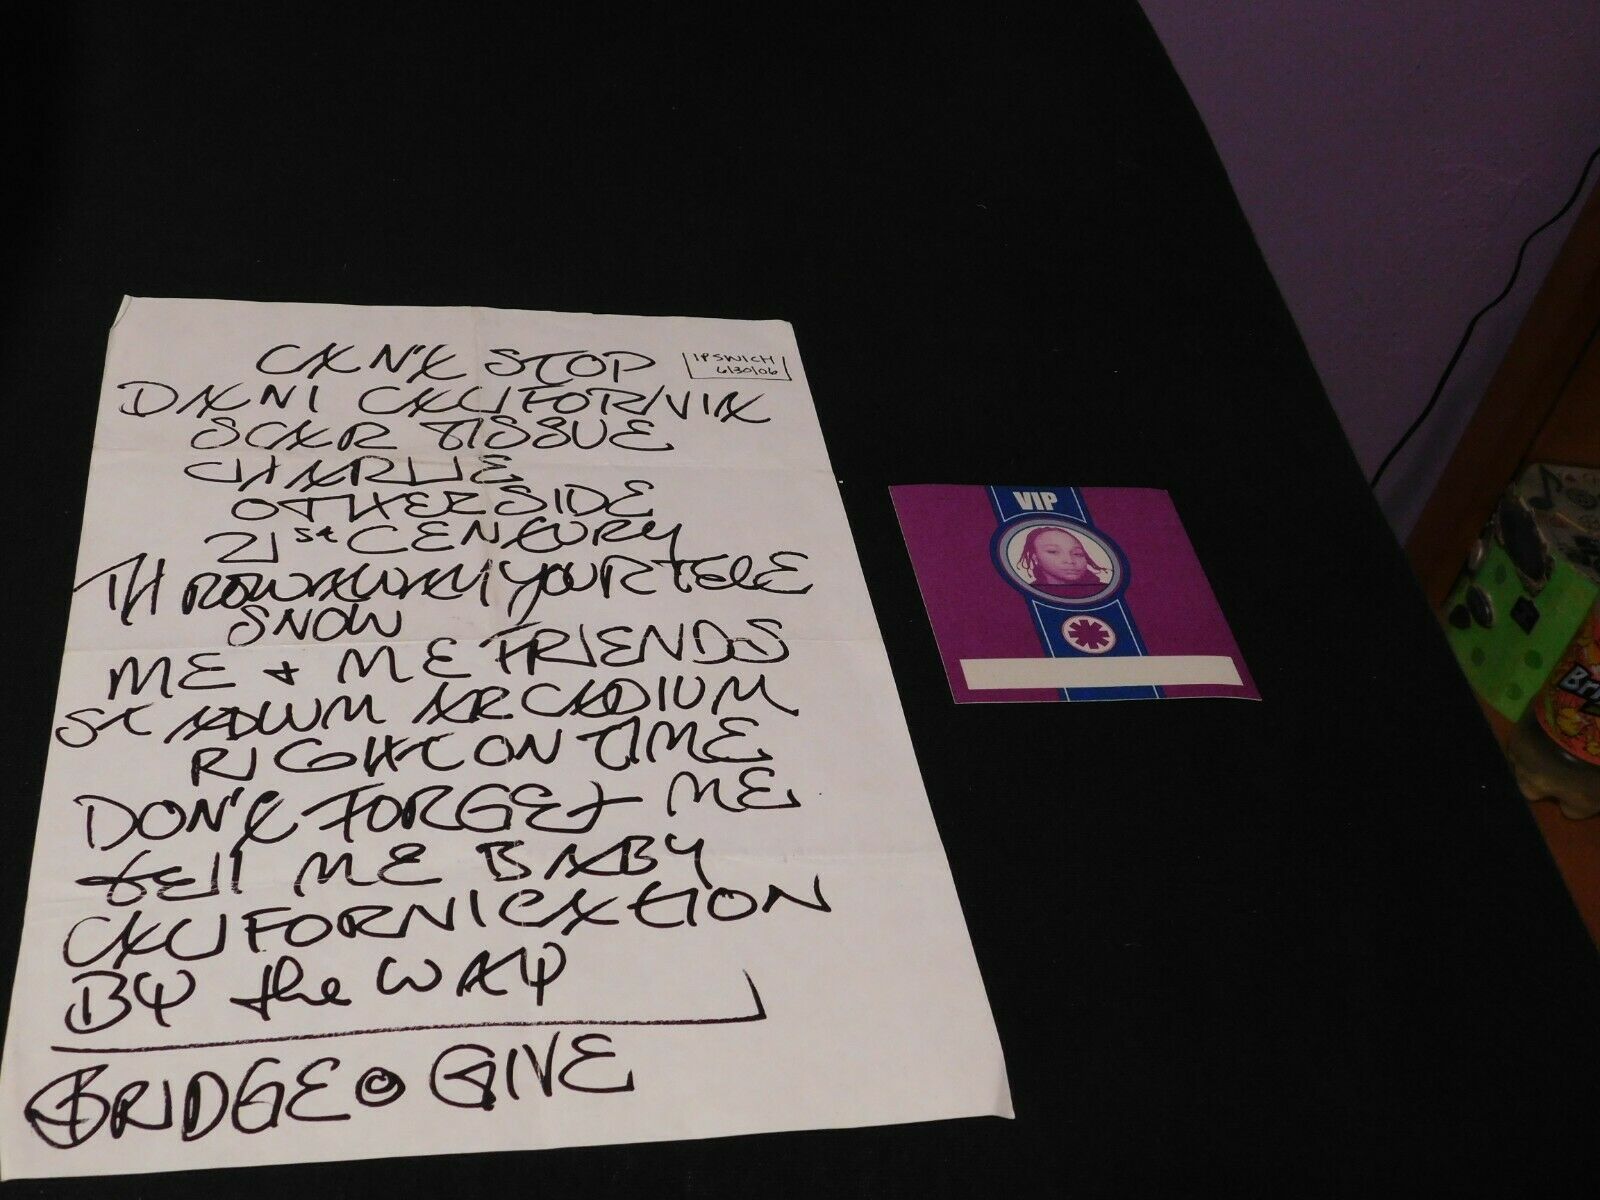 CAN'T STOP
IPSWICH
6/30/06
DANI CALIFORNIA
SCAR TISSUE
CHARLIE
OTHERSIDE
21st CENTURY
THROW AWAY YOUR TELE
SNOW
ME + ME FRIENDS
STADIUM ARCADIUM
RIGHT ON TIME
DON'T FORGET ME
tell ME BABY
CALIFORNICATION
BY the WAY
BRIDGE GIVE
VIP